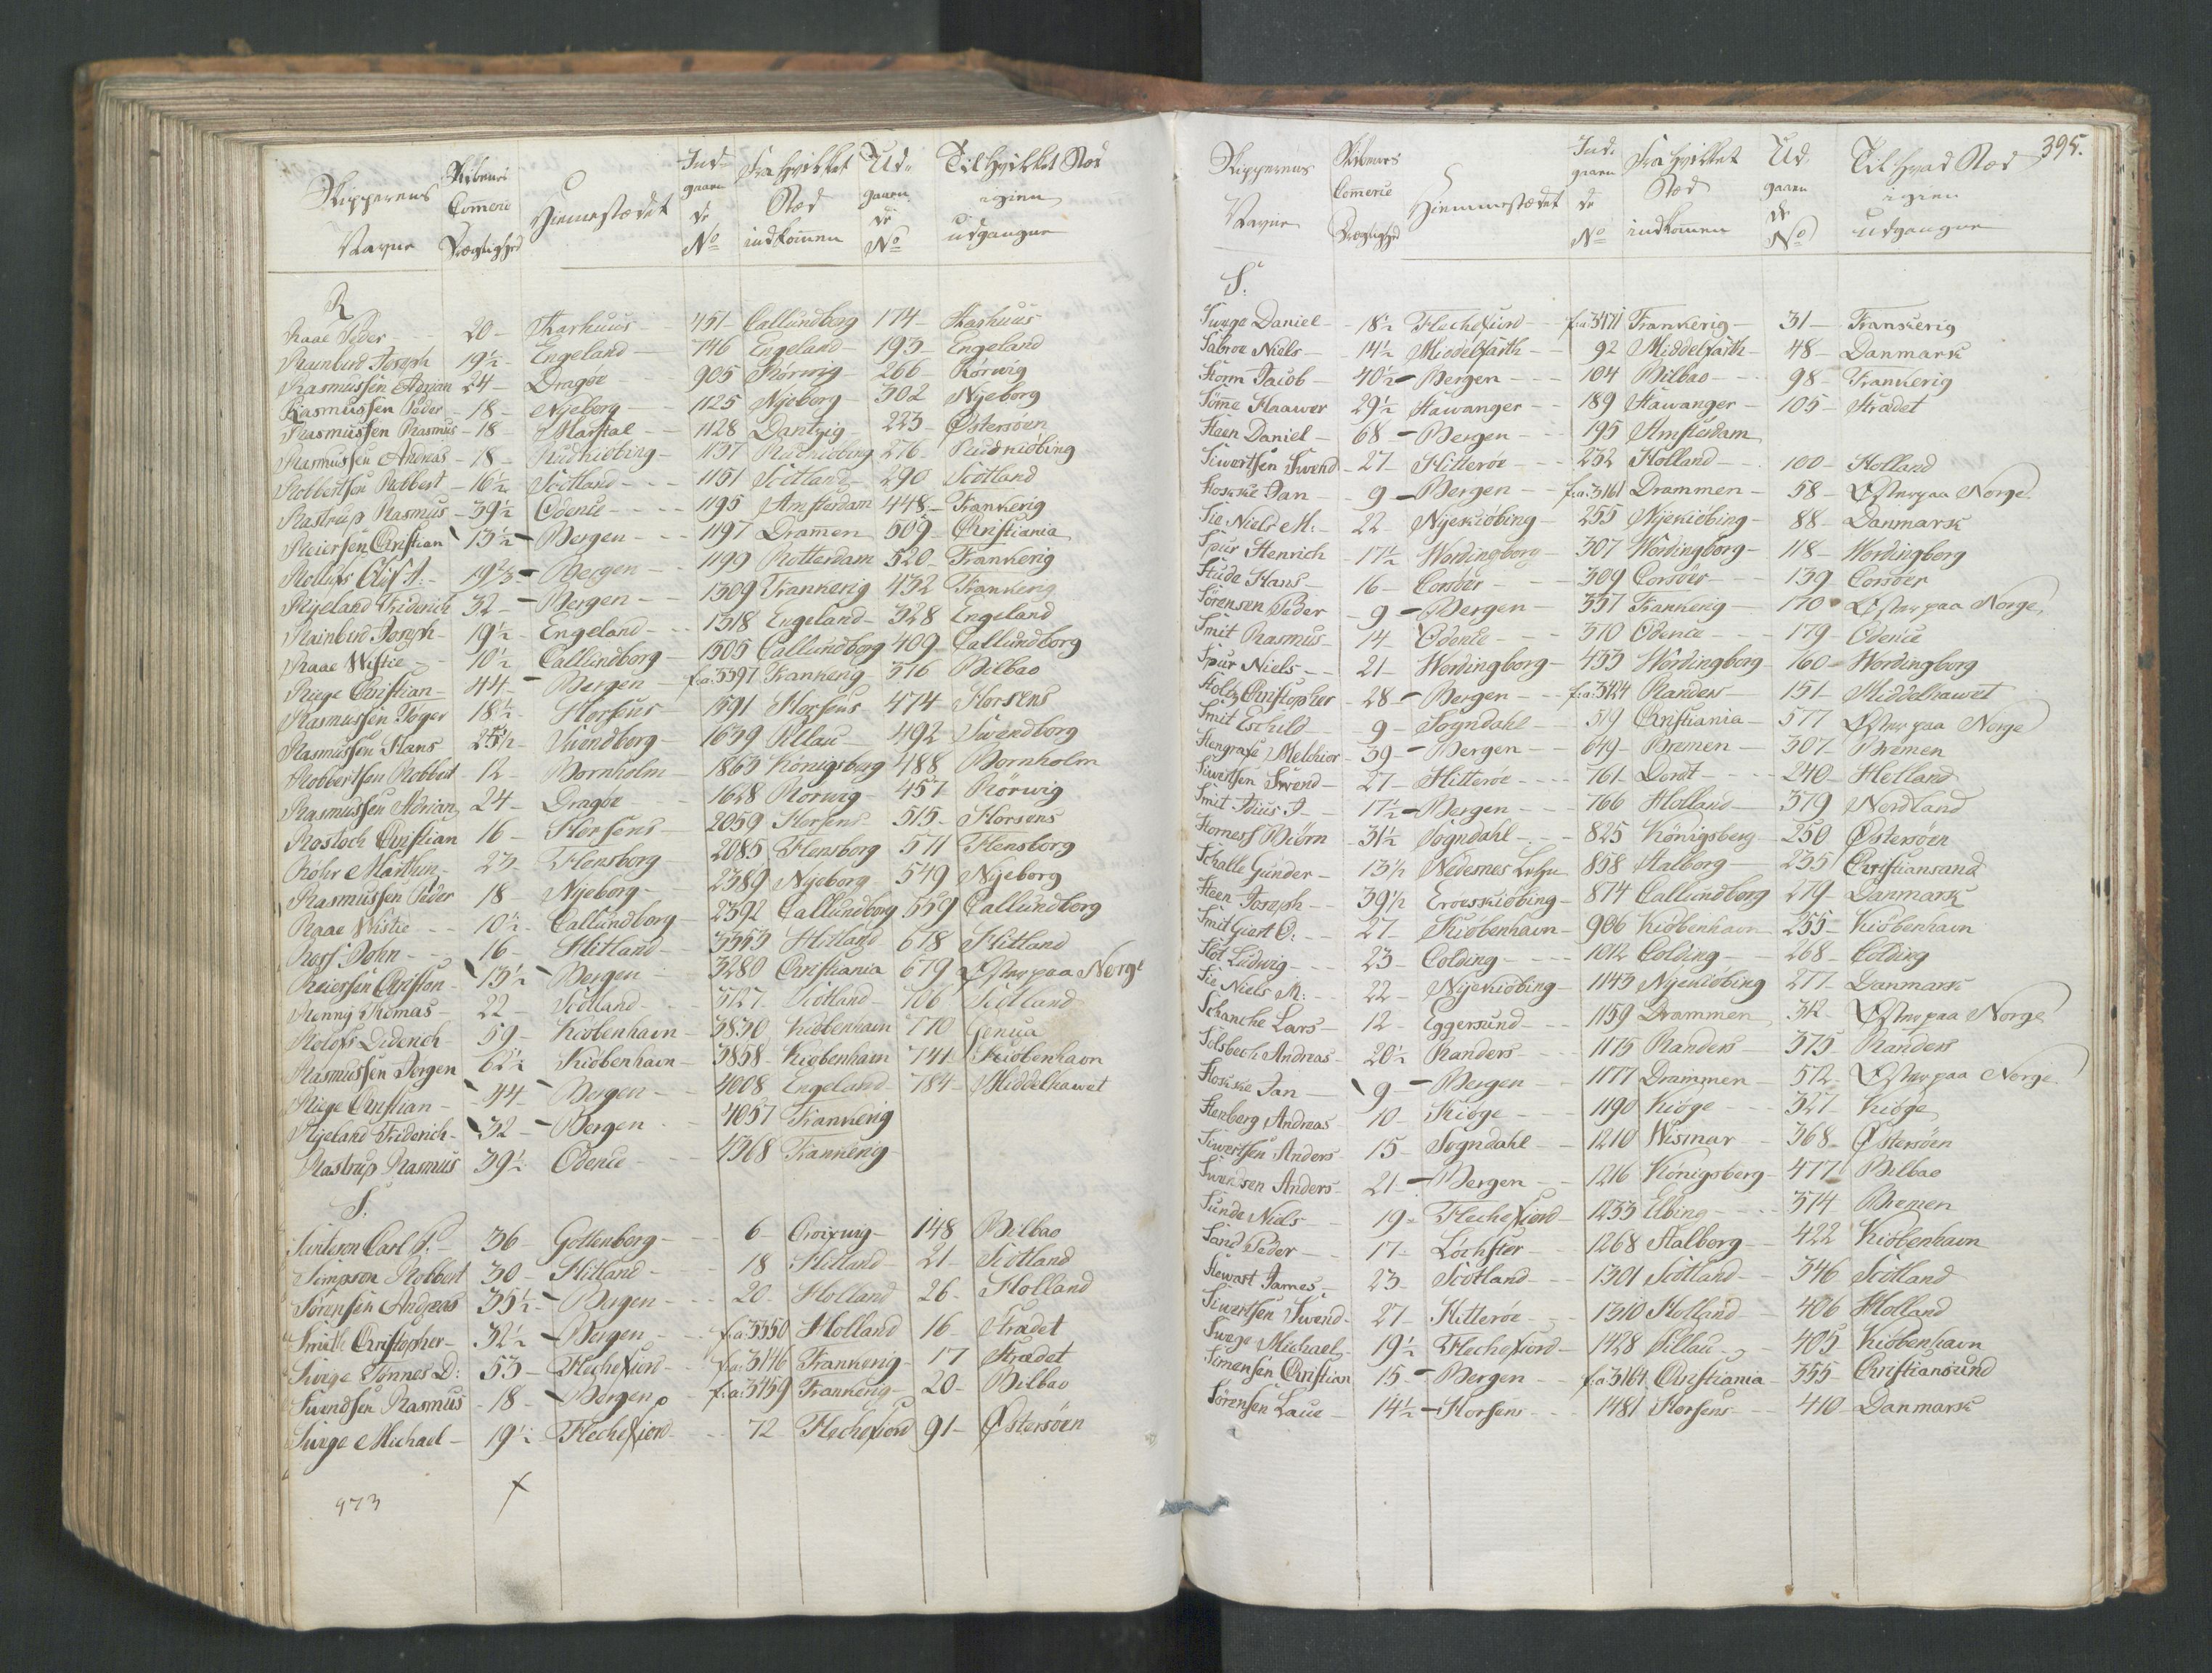 Skipperens Navne | Skibenes Commerce Drægtighed | Hiemmestædet | Ind gaaen de No | Fra hvilket Stæd indkommen | Ud gaaen de No | Til hvilket Stæd igien udgangne
R
Raae Peder - 20 - Aarhuus - 451 - Callundborg 174 - Aarhuus
Rainbird Joseph 19½ - Engeland - 746 Engeland - 193 - Engeland
Rasmussen Adrian 24 - Dragöe - 905 Rörwig - 266 - Rörwig
Rasmussen Peder - 18 - Nyeborg - 1125 Nyeborg - 302 Nyeborg
Rasmussen Rasmus - 18 - Marstal - 1128 Dantzig - 223 - Östersöen
Rasmussen Andreas - 18 - Rudkiöbing - 1137 Rudkiöbing 276 - Rudkiöbing
Robbertsen Robbert - 16½ - Scotland - 1151 Scotland - 290 Scotland
Rastrup Rasmus - 39½ - Odence - 1195 Amsterdam 448 - Frankerig
Reiersen Christian 13½ - Bergen - 1197 Drammen 509 - Christiania
Rolufs Oluf A: - 19⅔ - Bergen - 1199 Rotterdam 520 - Frankerig
Ryeland Friderich 32 - Bergen - 1309 Frankerig 432 Frankerig
Rainbird Joseph - 19½ - Engeland - 1318 Engeland - 328 Engeland
Raae Wistie - 10½ - Callundborg - 1505 Callundborg 409 - Callundborg
Riege Christian - 44 - Bergen - f.a: 3397 Frankerig 316 Bilbao
Rasmussen Töger 18½ - Horsens - 1591 Horsens 474 - Horsens
Rasmussen Hans 25½ - Svendborg - 1639 Pillau - 492 - Svendborg
Robbertsen Robbert - 12 - Bornholm - 1865 Königsberg 488 Bornholm
Rasmussen Adrian 24 - Dragöe - 1628 Rörwig - 457 Rörwig
Rostoch Christian 16 - Horsens - 2059 Horsens 515 - Horsens
Röhr Marthin - 23 - Flensborg - 2085 Flensborg 571 Flensborg
Rasmussen Peder 18 - Nyeborg - 2389 Nyeborg 549 Nyeborg
Raae Wistie - 10½ - Callundborg - 2392 Callundborg 559 Callundborg
Ross John - 16 - Hitland - 3353 Hitland 678 Hitland
Reiersen Christian - 13½ - Bergen - 3280 Christiania 679 Östnorpaa Norge
Renny Thomas - 22 - Scotland - 3727 Scotland - 706 Scotland
Rolofs Diderich - 59 - Kiöbenhavn - 3830 Kiöbenhavn 770 Genua
Rasmussen Jörgen 62½ Kiöbenhavn - 3858 Kiöbenhavn 741 Kiöbenhavn
Riege Christian - 44 - Bergen - 4008 Engeland - 784 - Middelhawet
Ryeland Friderich - 32 - Bergen - 4057 Frankerig
Rastrup Rasmus 39½ Odence - 4368 Frankerig
S.
Carl P: - 36 - Gottenborg - 6 Croixvig - 148 Bilbao
Simpson Robbert 30 - Hitland - 18 Hitland - 21 - Scotland
Sörensen Andreas 35½ - Bergen - 20 - Holland 26 - Holland
Smith Christopher - 32½ - Bergen - f:a: 3350 Holland 16 - Strædet
Svege Tönnes D: - 53 - Flechefiord - f:a: 3446 Frankerig - 17 Strædet
Svendsen Rasmus - 18 - Bergen - f:a: 3459 Frankerig - 20 - Bilbao
Svege Michael - 19½ - Flechefiord - 72 Flechefiord 91 - Östersöen
973
395.
Skipperens Navne | Skibenes Commerce Drægtighed | Hiemmestædet | Ind gaaen de No | Fra hvilket Stæd indkommen | Ud gaaen de No | Til hvad Stæd igien udgangne
S.
Svege Daniel - 18½ Flechefiord - f:a: 3471 Frankerig - 31 - Frankerig
Sabroe Niels - 14½ Middelfarth - 92 Middelfarth - 48 - Danmark
Storm Jacob - 40½ - Bergen - 104 Bilbao - 98 - Frankerig
Sömme Haawer 29½ Stawanger - 189 Stawanger - 105 - Strædet
Steen Daniel - 68 - Bergen - 195 Amsterdam
Siwertsen Swend - 27 - Hitteröe - 232 Holland - 100 - Holland
Jan - 9 - Bergen - f:a: 3161 Drammen - 58 - Östnorpaa Norge
Sie Niels M: - 22 - Nyekiöbing - 255 Nyekiöbing - 88 - Danmark
Spur Henrich - 17½ Wordingborg - 307 Wordingborg - 118 - Wordingborg
Stude Hans - 16 - Corsöer - 309 Corsöer - 139 Corsöer
Sörensen Peder - 9 - Bergen - 337 Frankerig - 170 Östnorpaa Norge
Smit Rasmus - 14 - Odence - 370 Odence - 179 - Odence
Spur Niels - 21 - Wordingborg - 433 Wordingborg - 160 - Wordingborg
Stoltz Christopher - 28 - Bergen - f:a: 3424 Randers - 151 - Middelhawet
Smit Eschild - 9 - Sogndahl - 519 Christiania - 577 Östnorpaa Norge
Stengrafe Melchior - 39 - Bergen - 649 - Bremen - 307 - Bremen
Siwertsen Swend - 27 - Hitteröe - 761 - Dordt - 240 - Holland
Smit J - 17½ - Bergen - 766 Holland - 379 Nordland
Storness Biörn - 31½ Sogndahl - 825 Königsberg - 250 Östersöen
Schalle Gunder - 13½ Nedenes Lehn 858 Aalborg - 235 Christiansand
Steen Joseph - 39½ Eröeskiöbing - 874 Callundborg 219 - Danmark
Smit Giert O: - 27 - Kiöbenhavn - 906 Kiöbenhavn - 255 - Kiöbenhavn
Slot Ludwig - 23 - Colding - 1012 Colding - 268 - Colding
Sie Niels M: - 22 - Nyekiöbing - 1143 Nyekiöbing 277 - Danmark
Schanche Lars - 12 - Eggersund - 1159 Drammen 312 - Östnorpaa Norge
Sölsbech Andreas - 20½ Randers - 1175 Randers - 375 - Randers
Jan - 9 - Bergen - 1177 Drammen - 572 - Östnorpaa Norge
Stenberg Andreas 10 - Kiöge - 1190 Kiöge - 327 - Kiöge
Siwertsen Anders 15 - Sogndahl - 1210 Wismar - 368 - Östersöen
Swendsen Anders - 21 - Bergen - 1216 Königsberg - 477 Bilbao
Sunde Niels - 19 - Flechefiord - 1233 Elbing - 374 - Bremen
Sand Peder - 17 - Löchstör - 1268 Aalborg - 422 Kiöbenhavn
Stewart James - 23 - Scotland - 1301 Scotland - 346 Scotland
Siwertsen Swend - 27 - Hitteröe - 1310 Holland - 406 Holland
Svege Michael - 19½ Flechefiord - 1428 Pillau - 405 - Kiöbenhavn
Simensen Christian 15 - Bergen - f:a 3164 Christiania - 355 - Christiansund
Sörensen Laue - 14½ - Horsens - 1481 Horsens - 410 - Danmark